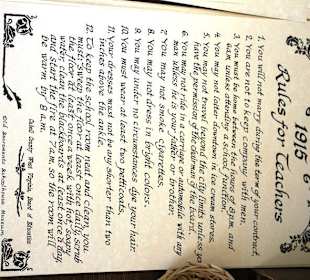 1915
Rules for Teachers
1. You will not marry during the term of your contract.
2. You are not to keep company with men.
3. You must be home between the hours of 8 p.m. and
6 a.m. unless attending a school function.
4. You may not loiter downtown in ice cream stores.
5. You may not travel beyond the city limits unless you
have the permission of the chairman of the board.
6. You may not ride in a carriage or automobile with any
man unless he is your father or brother.
7. You may not smoke cigarettes.
8. You may not dress in bright colors.
9. You may under no circumstances dye your hair.
10. You must wear at least two petticoats.
11. Your dresses must not be any shorter than two
inches above the ankle.
12. To keep the school room neat and clean, you
must: sweep the floor at least once daily, scrub
the floor at least once a week with hot, soapy
water, clean the blackboards at least once a day
and start the fire at 7 a.m. so the room will
be warm by 8 a.m.
Cabell County West Virginia, Board of Education
Old Sacramento Schoolhouse Museum